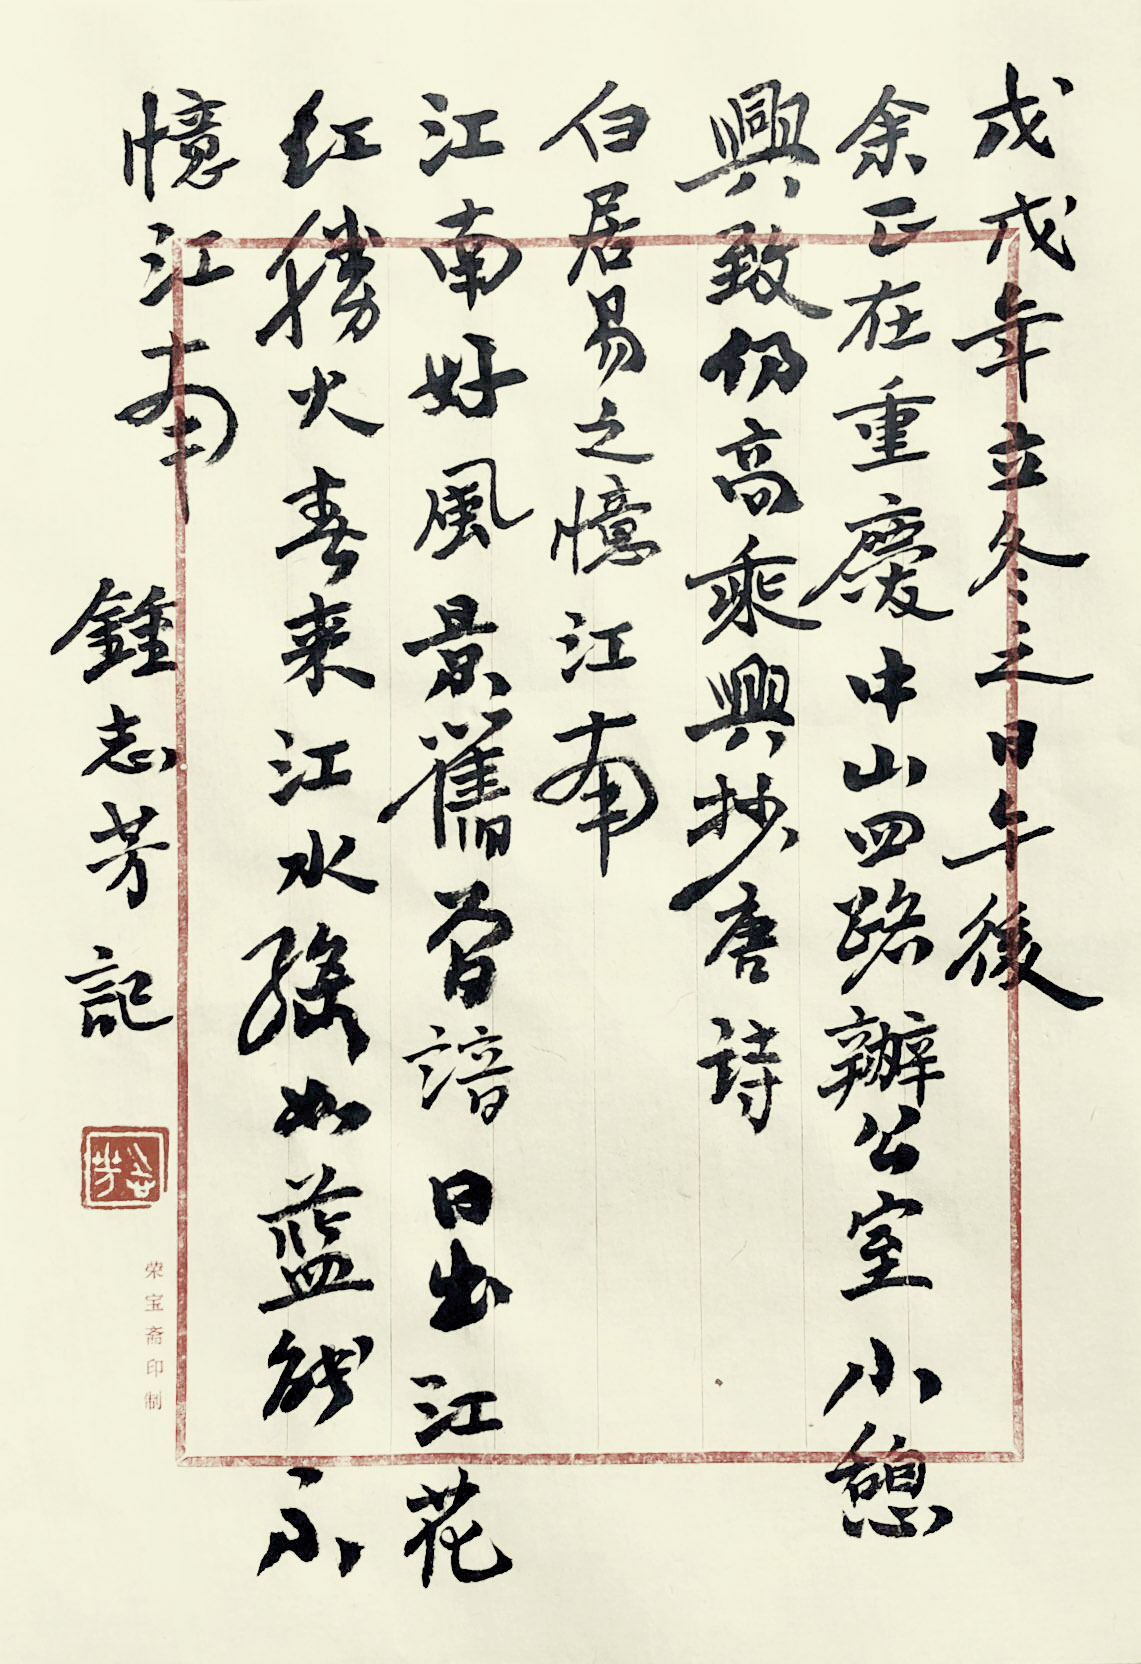 戊戌年立冬之日午後
余正在重慶中山四路辦公室小憩
興致仍高乘興抄唐詩
白居易之憶江南
江南好風景舊曾諳日出江花
红勝火春来江水緑如藍能不
憶江南
鍾志芳記
志芳
荣宝斋印制